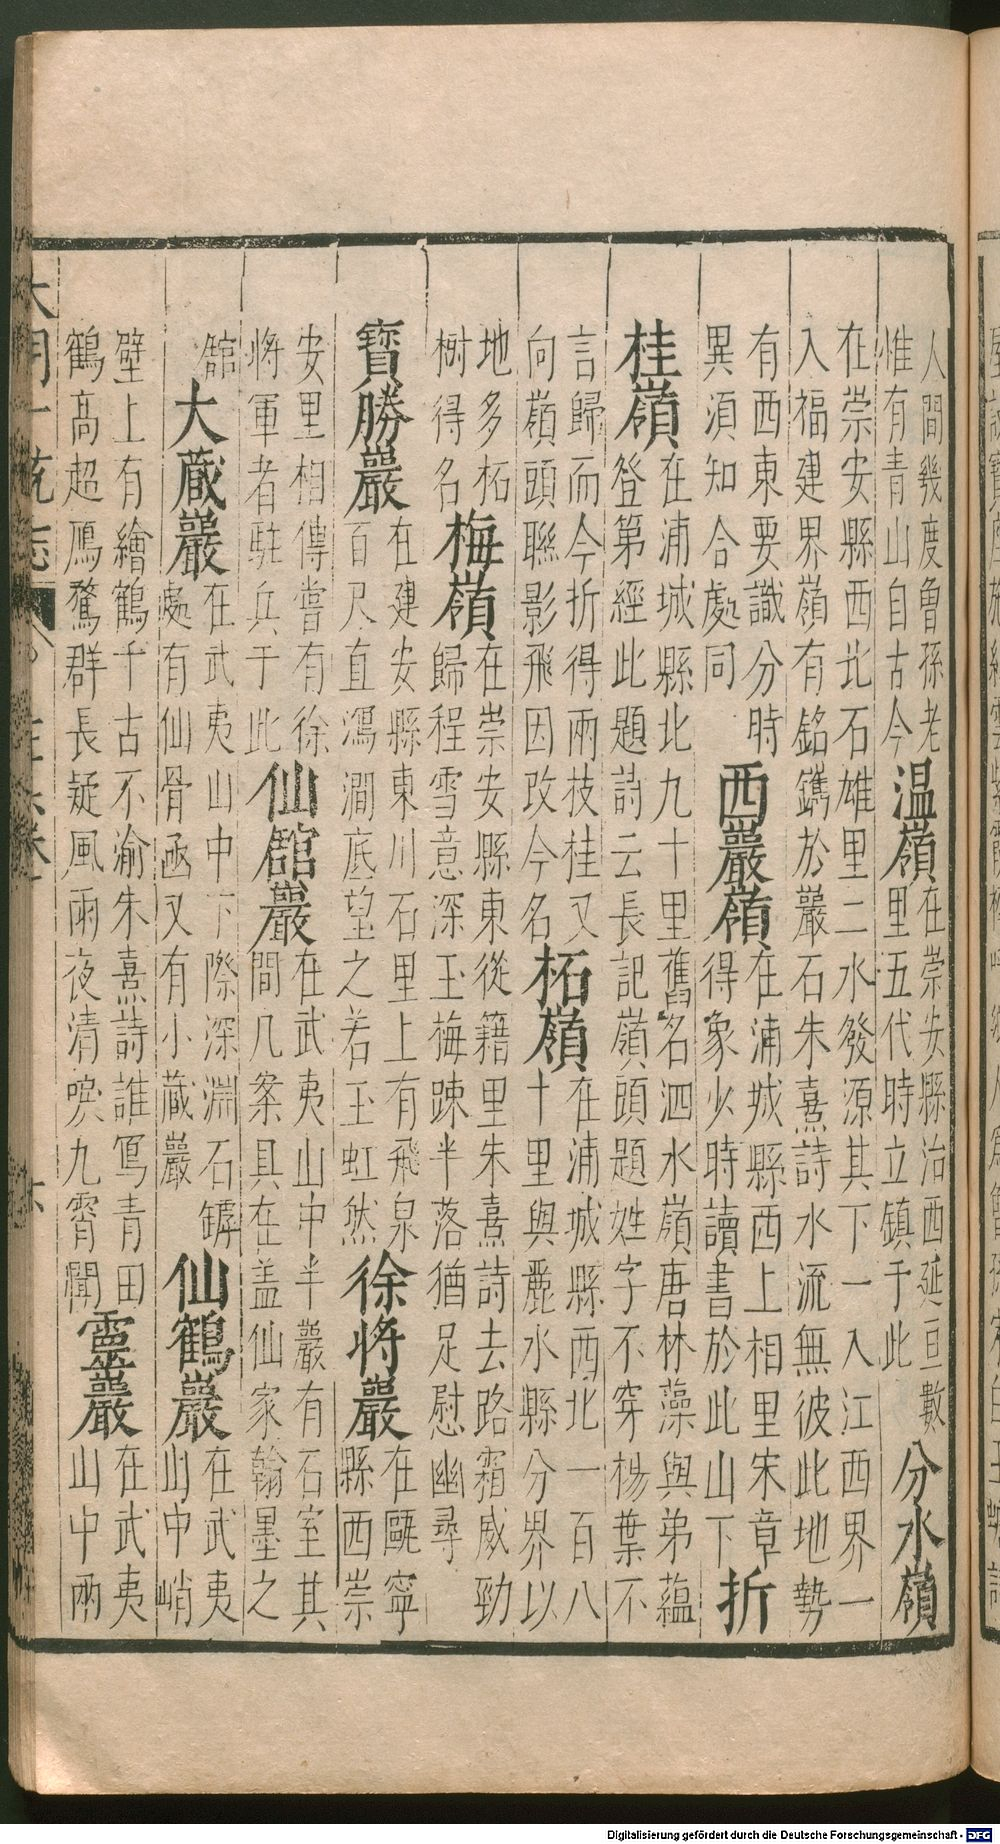 人間幾度曾孫老
惟有青山自古今
温嶺
在崇安縣治西延亘數
里五代時立鎮于此
分水嶺
在崇安縣西北石雄里二水發源其下一入江西界一
入福建界嶺有銘鐫於巖石朱熹詩水流無彼此地勢
有西東要識分時
異須知合處同
西巖嶺
在浦城縣西上相里宋章
得象少時讀書於此山下
折
桂嶺
在浦城縣北九十里舊名泗水嶺唐林藻與弟蘊
登第經此題詩云長記嶺頭題姓字不穿楊葉不
言歸而今折得兩枝桂又
向嶺頭聯影飛因改今名
柘嶺
在浦城縣西北一百八
十里與麗水縣分界以
地多柘
樹得名
梅嶺
在崇安縣東從籍里朱熹詩去路霜威勁
歸程雪意深玉梅踈半落猶足慰幽尋
寶勝巖
在建安縣東川石里上有飛泉
百尺直瀉澗底望之若玉虹然
徐將巖
在甌寧
縣西崇
安里相傳嘗有徐
將軍者駐兵于此
仙舘巖
在武夷山中半巖有石室其
間几案具在盖仙家翰墨之
舘
大藏巖
在武夷山中下際深淵石罅
處有仙骨函又有小藏巖
仙鶴巖
在武夷
山中峭
壁上有繪鶴千古不渝朱熹詩誰寫青田
鶴高超鴈鶩群長疑風雨夜清唳九霄聞
靈巖
在武夷
山中兩
大明一統志
Digitalisierung gefördert durch die Deutsche Forschungsgemeinschaft - DFG